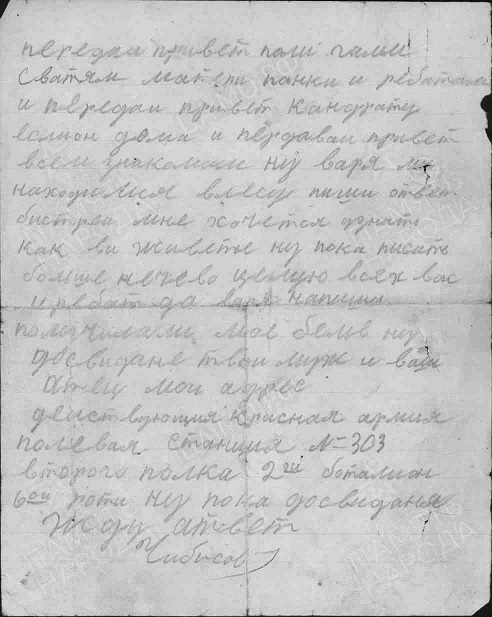 передаи привет поли гали
Сватям матери панки и ребатам
и передаи привет Кандрату
если он дома и пердаваи привет
всем знакомам ну варя ми
находимся влесу пиши ответ
бистреа мне хочется узнать
как ви живете ну пока писать
больше нечево целую всех вас
и ребат да варя напиши
получила ли мое белье ну
досвидане твои муж и ваш
атец мои адрес
деиствующия красная армия
полевая станция № 303
второго полка 2ой баталион
6ои роти ну пока досвиданя
жду атвет
Чибисов
ПАМЯТЬ
НАРОДА